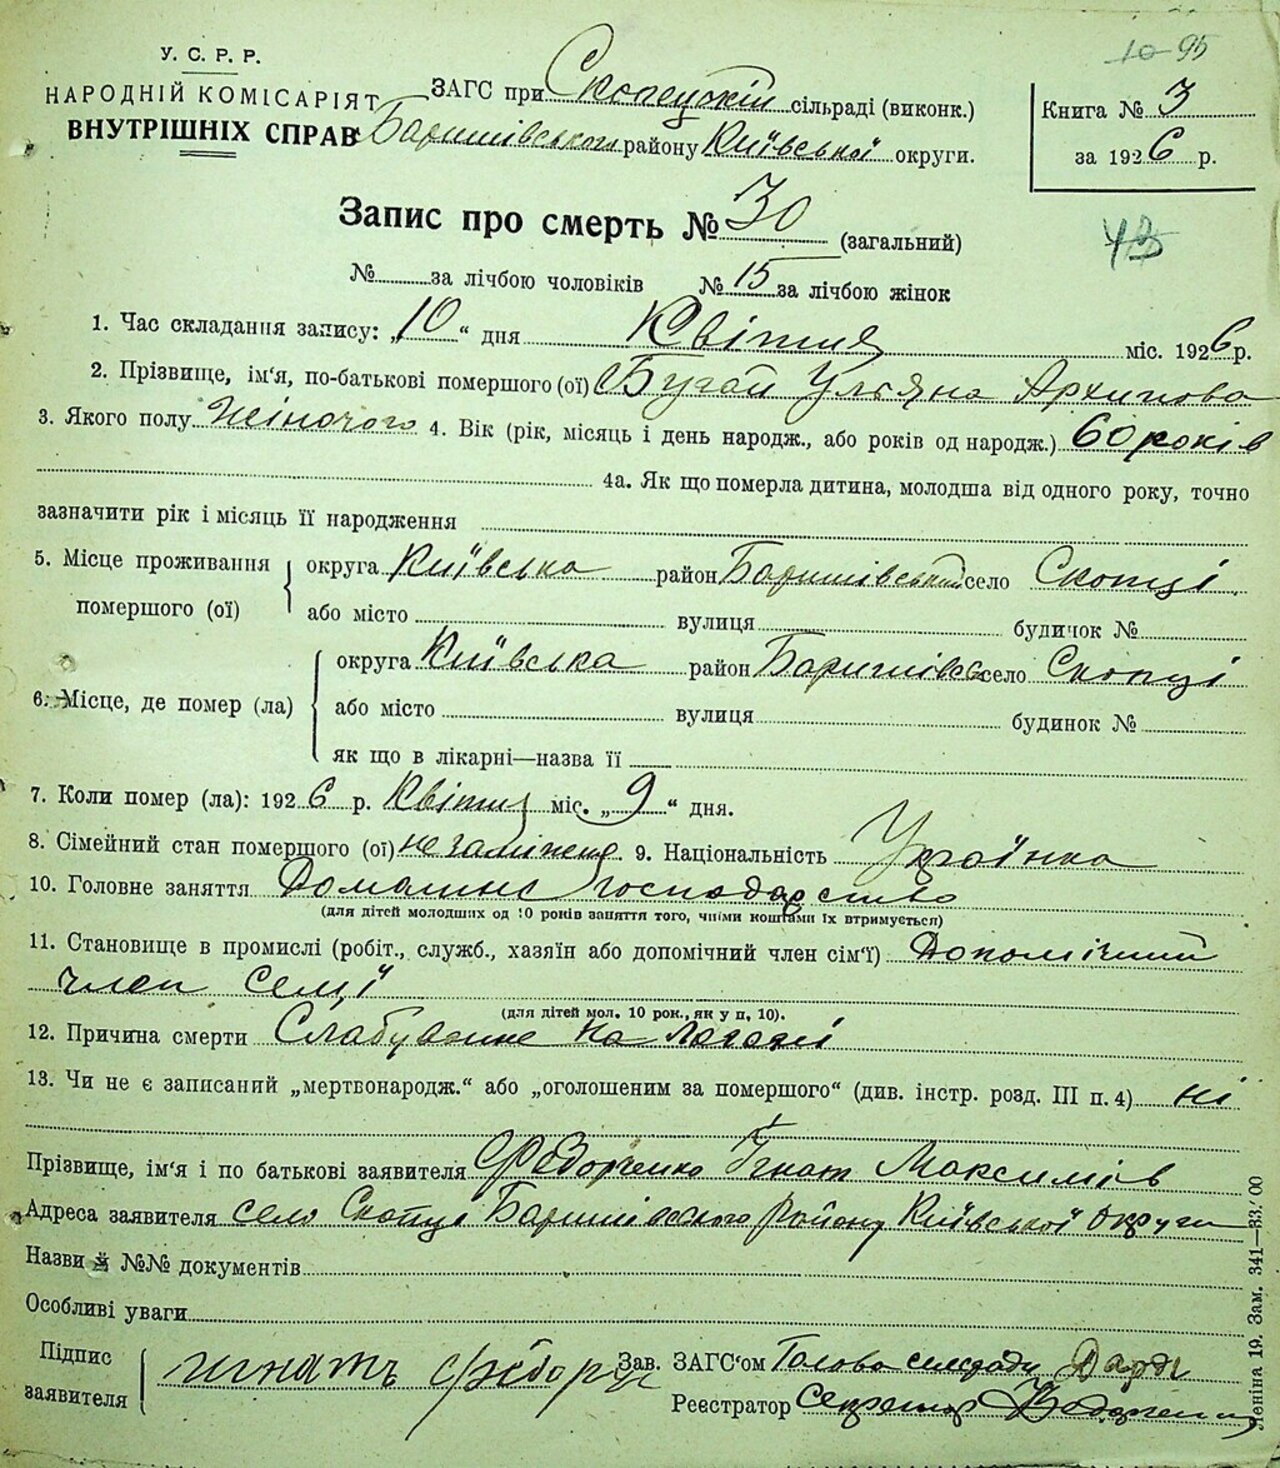 10 95
У. С. Р. Р.
НАРОДНІЙ КОМІСАРІЯТ
ВНУТРІШНІХ СПРАВ
ЗАГС при Скопецькій сільраді (виконк.)
Баришівського району Київської округи.
Книга № 3
за 1926 р.
Запис про смерть № 30 (загальний)
43
№ за лічбою чоловіків № 15 за лічбою жінок
1. Час складання запису: „10“ дня Квітня міс. 1926 р.
2. Прізвище, ім'я, по-батькові помершого (ої) Бугай Уляна Архипова
3. Якого полу Жіночого 4. Вік (рік, місяць і день народж., або років од народж.) 60 років
4а. Як що померла дитина, молодша від одного року, точно
зазначити рік і місяць її народження
5. Місце проживання помершого (ої) округа Київська район Баришівський село Скопці
або місто вулиця будичок №
6. Місце, де помер (ла) округа Київська район Баришівсь село Скопці
або місто вулиця будинок №
як що в лікарні—назва її
7. Коли помер (ла): 1926 р. Квітня міс. „9“ дня.
8. Сімейний стан помершого (ої) незаміжня. 9. Національність Українка
10. Головне заняття Домашнє господарство
(для дітей молодших од 10 років заняття того, чиїми коштами їх втримується)
11. Становище в промислі (робіт., служб., хазяїн або допомічний член сім'ї) Допомічний
член семії
(для дітей мол. 10 рок., як у п, 10).
12. Причина смерти Слабування на
13. Чи не є записаний „мертвонародж.“ або „оголошеним за помершого“ (див. інстр. розд. III п. 4) ні
Прізвище, ім'я і по батькові заявителя Федорченко Ігнат Максимів
Адреса заявителя село Скопці Баришівського Району Київської Округи
Назви й №№ документів
Особливі уваги
Підпис заявителя Игнатъ
Зав. ЗАГС'ом Голова сільради
Реєстратор Секретар
Леніна 19. Зам. 341—33.00